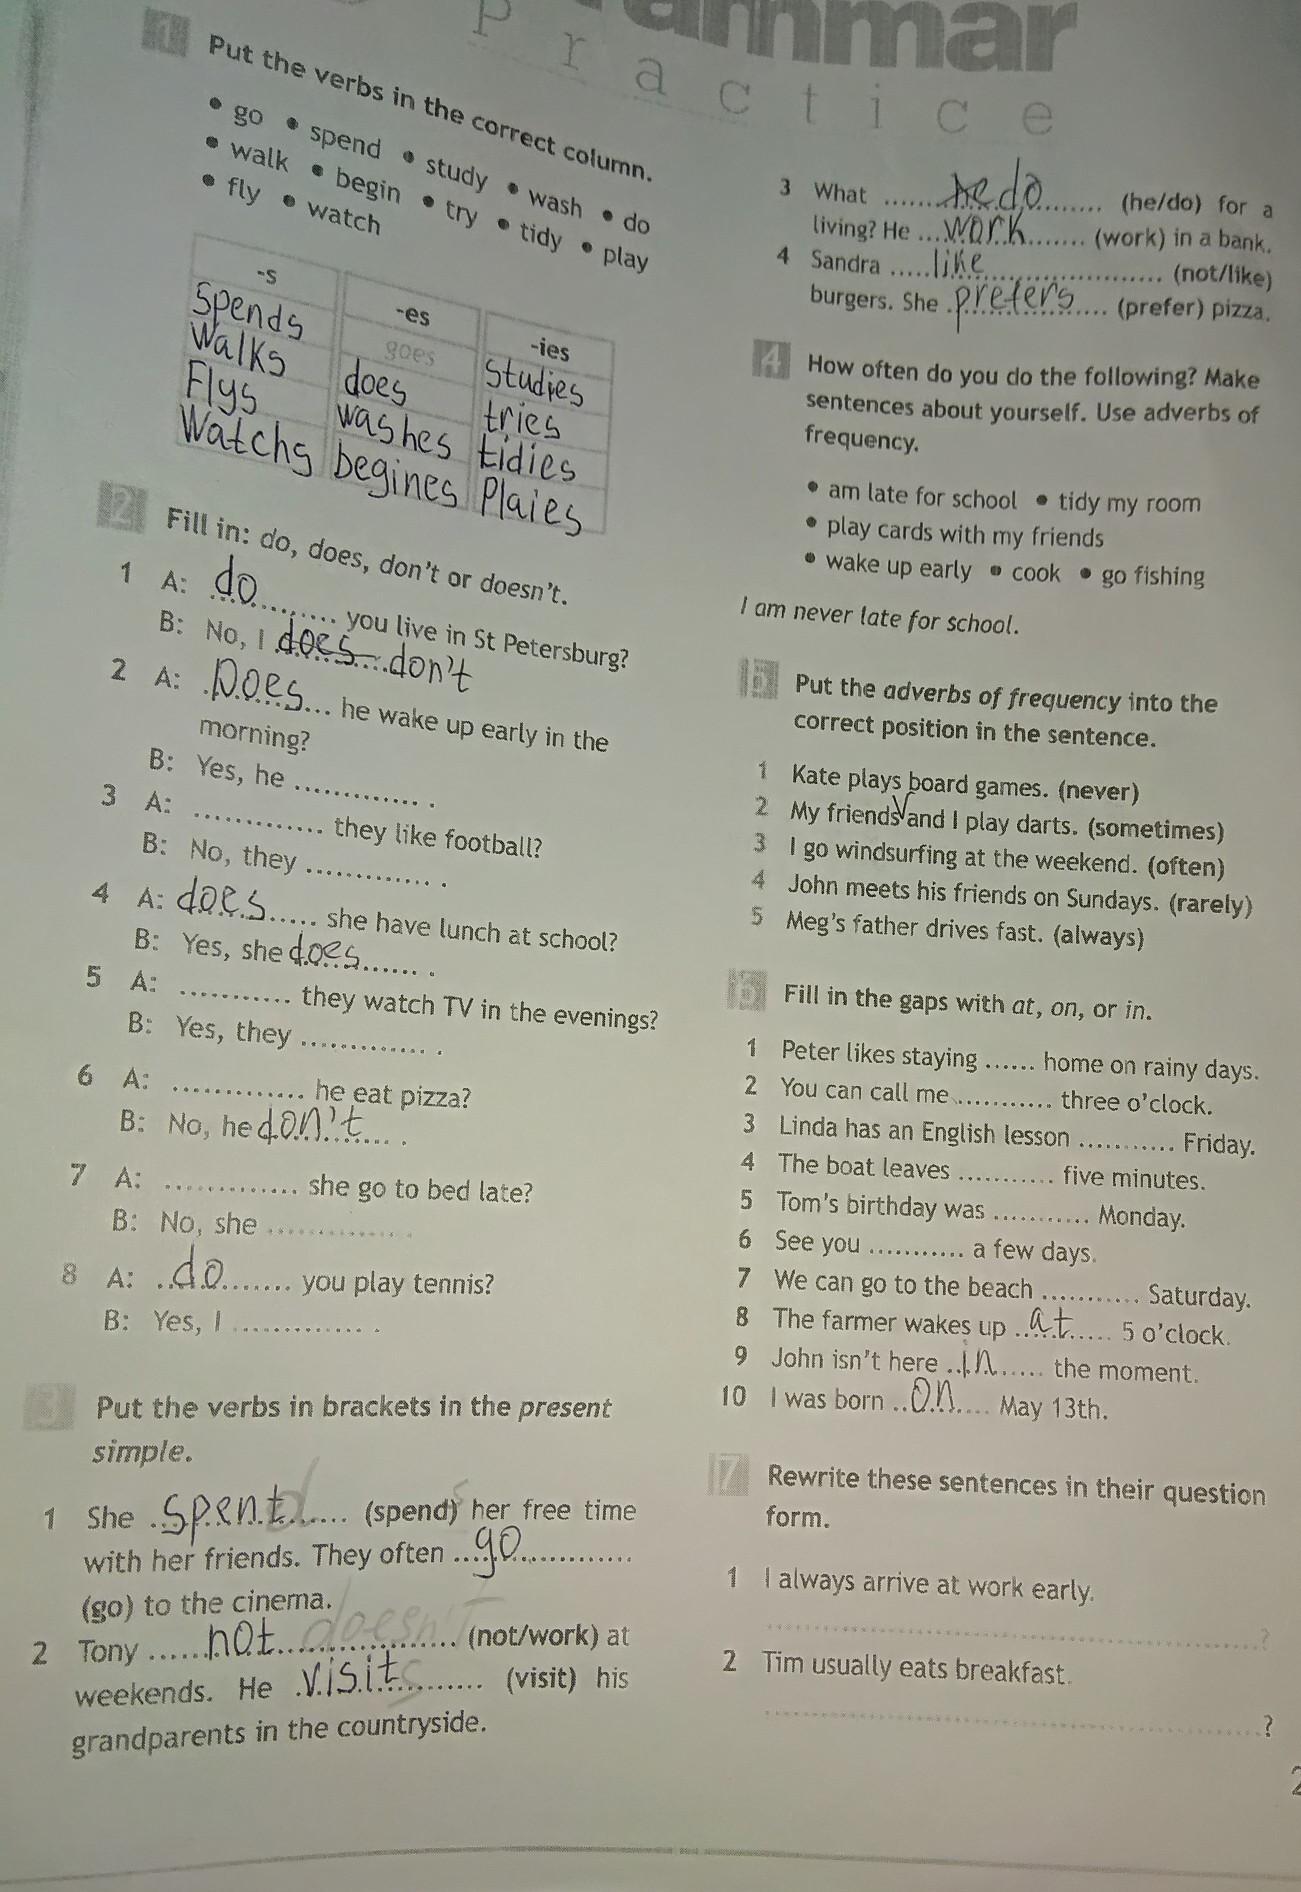 Grammar
Practice
1 Put the verbs in the correct column.
• go • spend • study • wash • do
• walk • begin • try • tidy • play
• fly • watch
-s -es -ies
goes
Spends does studies
Walks washes tries
Flys begines tidies
Watchs Plaies
2 Fill in: do, does, don't or doesn't.
1 A: do you live in St Petersburg?
B: No, I does don't
2 A: Does he wake up early in the
morning?
B: Yes, he .............. .
3 A: .............. they like football?
B: No, they .............. .
4 A: does she have lunch at school?
B: Yes, she does .
5 A: ............ they watch TV in the evenings?
B: Yes, they .............. .
6 A: .............. he eat pizza?
B: No, he don't .
7 A: .............. she go to bed late?
B: No, she .............. .
8 A: do you play tennis?
B: Yes, I .............. .
3 Put the verbs in brackets in the present
simple.
1 She spent (spend) her free time
with her friends. They often go
(go) to the cinema.
2 Tony not doesn't (not/work) at
weekends. He visits (visit) his
grandparents in the countryside.
3 What he do (he/do) for a
living? He work (work) in a bank.
4 Sandra like (not/like)
burgers. She prefers (prefer) pizza.
4 How often do you do the following? Make
sentences about yourself. Use adverbs of
frequency.
• am late for school • tidy my room
• play cards with my friends
• wake up early • cook • go fishing
I am never late for school.
5 Put the adverbs of frequency into the
correct position in the sentence.
1 Kate plays board games. (never)
2 My friends and I play darts. (sometimes)
3 I go windsurfing at the weekend. (often)
4 John meets his friends on Sundays. (rarely)
5 Meg's father drives fast. (always)
6 Fill in the gaps with at, on, or in.
1 Peter likes staying ...... home on rainy days.
2 You can call me ........... three o'clock.
3 Linda has an English lesson ........... Friday.
4 The boat leaves ........... five minutes.
5 Tom's birthday was ........... Monday.
6 See you ........... a few days.
7 We can go to the beach ........... Saturday.
8 The farmer wakes up at 5 o'clock.
9 John isn't here in the moment.
10 I was born on May 13th.
7 Rewrite these sentences in their question
form.
1 I always arrive at work early.
..................................................?
2 Tim usually eats breakfast.
..................................................?
2